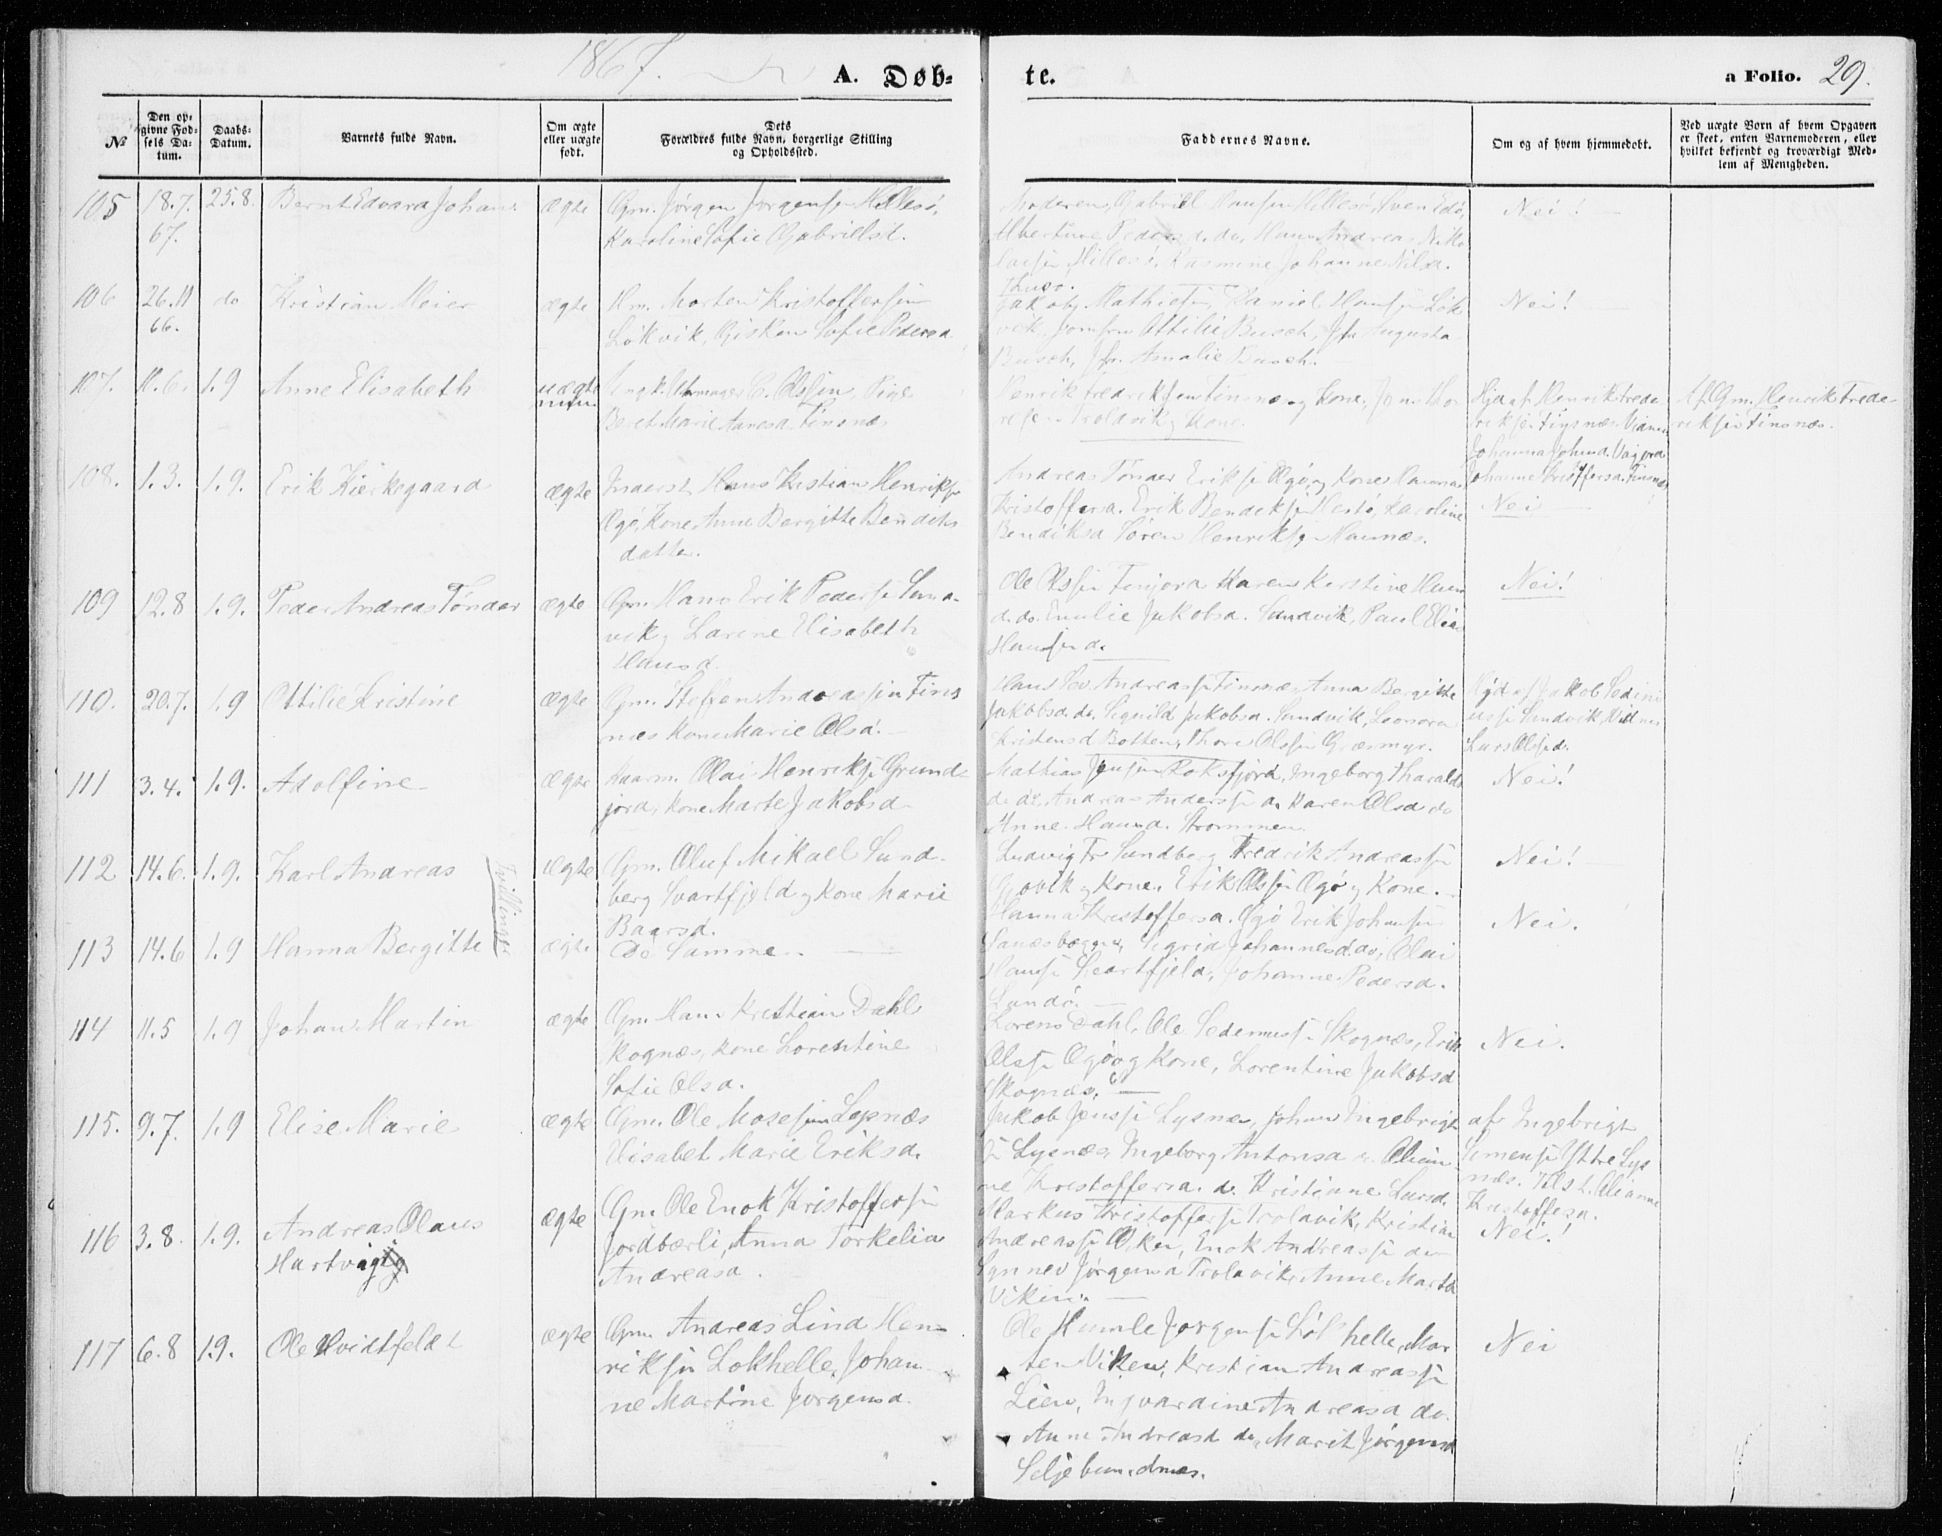 1867.
A. Døb-
te.
a Folio. 29.
№
Den op-
givne Fød-
sels Da-
tum.
Daabs-
Datum.
Barnets fulde Navn.
Om ægte
eller uægte
født.
Dets
Forældres fulde Navn, borgerlige Stilling
og Opholdssted.
Faddernes Navne.
Om og af hvem hjemmedøbt.
Ved uægte Børn af hvem Opgaven
er skeet, enten Barnemoderen, eller
hvilket bekjendt og troværdigt Med-
lem af Menigheden.
105 18.7. 25.8. Bernt Edvard Johan ægte Gm. Jørgen Jørgensen Hillesø,
67. Karoline Sofie Gabrielsd.
Moderen, Gabriel Hansen Hillesø,
Albertine Pedersd. do, Hans Andreas Niko
laisen Hillesø, Rasmine Johanne Nilsd.
Nei!
106 26.11 do Kristian Meier ægte Morten Kristoffersen
66. Løkvik, Gisken Sofie Pedersd.
Jakob Mathisen, Daniel Hansen Løk
vik, Jomfru Ottilie Busch, Jfr Augusta
Busch, Jfr. Amalie Busch.
Nei!
107. 11.6. 1.9 Anne Elisabeth uægte
Ungk. C. Olssen, Pige
Beret Marie Finsnæs
Henrik Fredriksen Finsnæs og Kone, Jens Tho
resen Trolavik og Kone.
Hjd af Henrik Frede
riksen Finsnæs
Johanna
Johanne Kristoffersd. Finsnæs
Af Gm. Henrik Frede-
riksen Finsnæs.
108. 1.3. 1.9. Erik Kierkegaard ægte Inderst Hans Kristian Henriksen
Øgø, Kone Anne Bergitte Bendiks
datter.
Andreas Tønder Eriksen Øgø, og Kone Hanna
Kristoffersd. Erik Bendiksen Hestø, Karoline
Bendiksd Søren Henriksen
Nei
109 12.8 1.9. Peder Andreas Tønder ægte Gm. Hans Erik Pedersen Sand-
vik og Larine Elisabeth
Hansd.
Ole Olssen Finjord Karen Kerstine
d. do. Emilie Jakobsd. Sandvik, Paul Elias
Hansen do
Nei!
110. 20.7. 1.9 Ottilie Kristine ægte Gm. Steffen Andreassen Fins
næs Kone Marie Olsd.
Andreassen Finsnæs Anna Bergitte
Jakobsd. do, Jakobsd. Sandvik, Leonora
Kristensd Botten, Thore Olssen Græsmyr.
Hjd af Jakob Sedeni
ussen Sandvik, Vidner
Lars Olssen do.
111 3.4. 1.9. Adolfine ægte Huusm. Olai Henriksen Grund-
jord, Kone Marte Jakobsd
Mathias Jensen Roksfjord, Ingeborg Haralds
d. do, Andreas Anderssen do Karen Olsd do
Anne Hansd. Strømmen.
Nei!
112 14.6. 1.9. Karl Andreas ægte Gm. Oluf Mikael Sund-
Tvillinger
berg Svartfjeld og Kone Marie
Baarsd.
Ludvig Fr Sundberg Fredrik Andreassen
Gjøvik og Kone, Erik Olssen Øgø og Kone.
Nei!
113 14.6 1.9 Hanna Bergitte ægte De Samme.
Hanna Kristoffersd. Øgø Erik Johansen
Sigrid Johannesd do, Olai
Hansen Svartfjeld, Johanne Pedersd.
Nei.
114 11.5 1.9 Johan Martin ægte Gm. Hans Kristian Dahl
Skognæs, Kone Lorentine
Sofie Olsd.
Lorens Dahl, Ole Skognæs, Erik
Olssen Øgø og Kone, Lorentine Jakobsd
Skognæs.
Nei.
115. 9.7. 1.9 Elise Marie ægte Gm. Ole Mosesen Lysnæs
Elisabet Marie Eriksd.
Jakob Jenssen Lysnæs, Johan Ingebrigt
sen Lysnæs, Ingeborg Antonsd do. Olian
ne Kristoffersd. do Kristiane Larsd.
af Ingebrigt
Simensen Yttre Lys
næs. Tilst. Olianne
Kristoffersd.
116 3.8. 1.9. Andreas Olaus ægte Gm. Ole Enok Kristoffersen
Hartvig
Jordbærli, Anna Torkelia
Andreasd.
Markus Kristoffersen Trolavik, Kristian
Andreassen Enok Andreassen do
Synnev Jørgensd Trolavik, Anne Marta
Viken.
Nei!
117 6.8 1.9. Ole Hvidtfeldt ægte Gm. Andreas Lind Hen-
riksen Lokhelle, Johan-
ne Martine Jørgensd.
Ole Humle Jørgensen Løkhelle, Mor
ten Viken, Kristian Andreassen
Lien, Ingvardine Andreasd do.
Anne Andreasd do, Marit Jørgensd
Seljebundnæs.
Nei